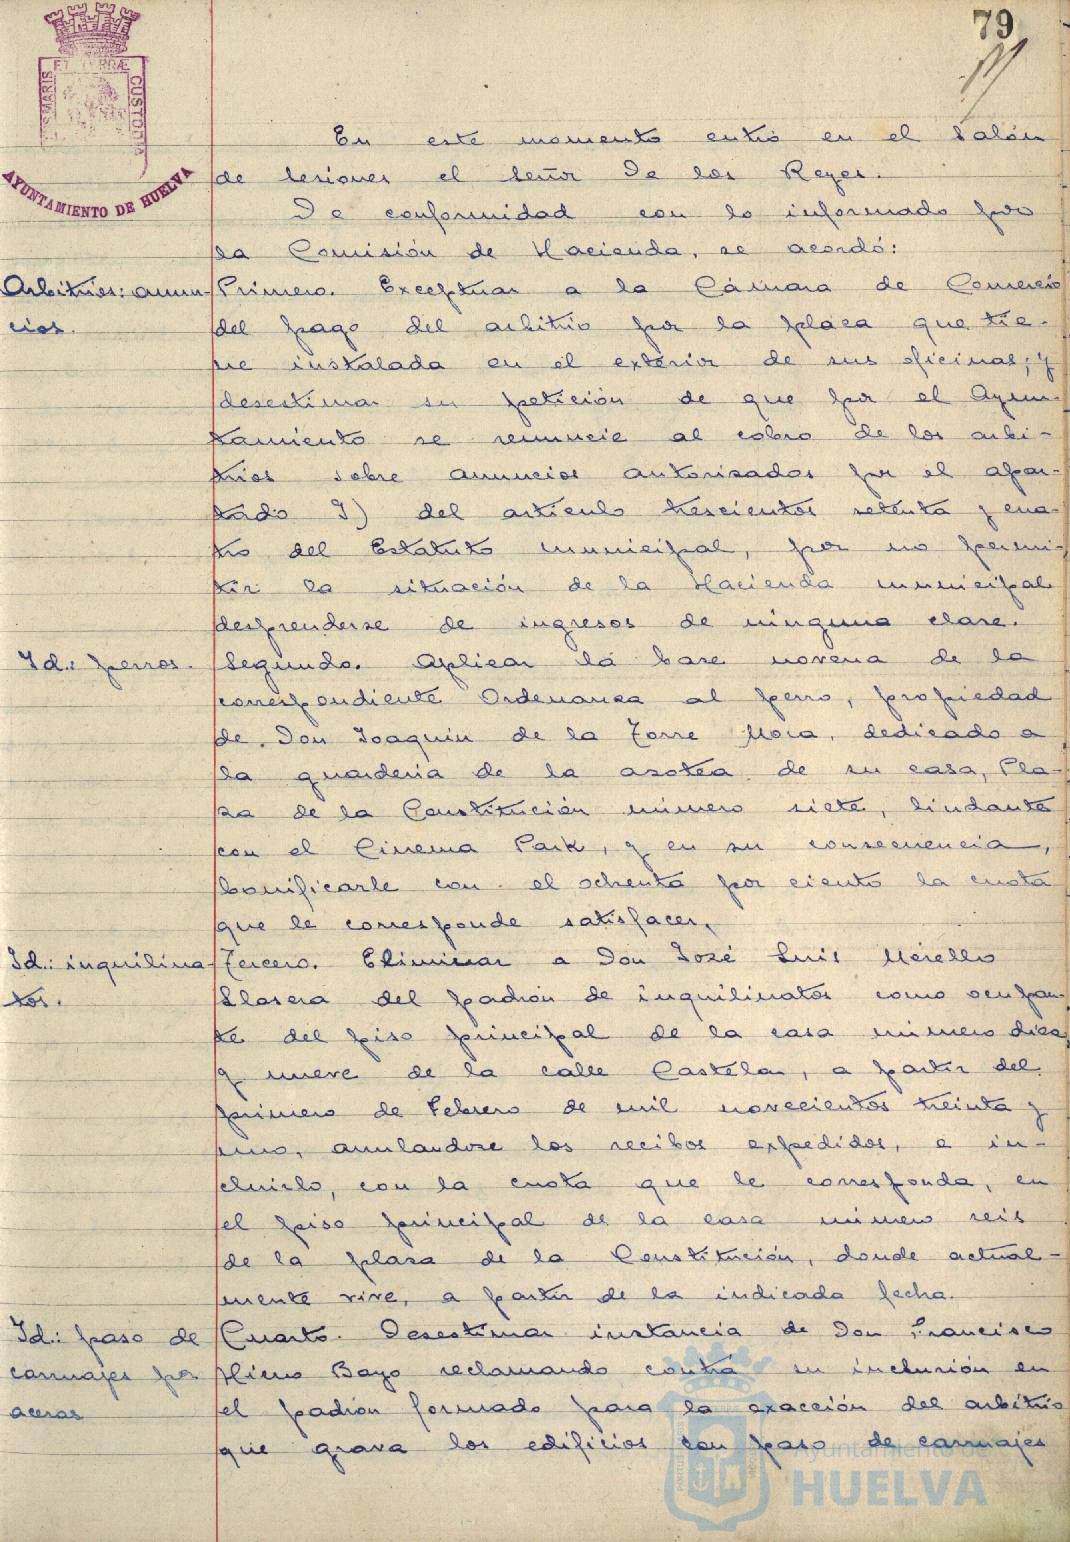 79
PORTUS MARIS ET TERRÆ CUSTODIA
AYUNTAMIENTO DE HUELVA
En este momento entró en el Salón
de Sesiones el Señor De los Reyes.
De conformidad con lo informado por
la Comisión de Hacienda, se acordó:
Arbitrios: anun-
cios.
Primero. Exceptuar a la Cámara de Comercio
del pago del arbitrio por la placa que tie-
ne instalada en el exterior de sus oficinas; y
desestimar su petición de que por el Ayun-
tamiento se renuncie al cobro de los arbi-
trios sobre anuncios autorizados por el apar-
tado I) del artículo trescientos setenta y cua-
tro del Estatuto municipal, por no permi-
tir la situación de la Hacienda municipal
desprenderse de ingresos de ninguna clase.
Id.: perros.
Segundo. Aplicar la base novena de la
correspondiente Ordenanza al perro, propiedad
de Don Joaquín de la Torre Mora, dedicado a
la guardería de la azotea de su casa, Pla-
za de la Constitución número siete, lindante
con el Cinema Park, y en su consecuencia,
bonificarle con el ochenta por ciento la cuota
que le corresponde satisfacer.
Id.: inquilina-
tos.
Tercero. Eliminar a Don José Luis Merello
Llasera del padrón de inquilinatos como ocupan-
te del piso principal de la casa número diez
y nueve de la calle Castelar, a partir del
primero de Febrero de mil novecientos treinta y
uno, anulandose los recibos expedidos, e in-
cluirlo, con la cuota que le corresponda, en
el piso principal de la casa número seis
de la plaza de la Constitución, donde actual-
mente vive, a partir de la indicada fecha.
Id.: paso de
carruajes por
aceras
Cuarto. Desestimar instancia de Don Francisco
Hierro Bayo reclamando contra su inclusión en
el padrón formado para la exacción del arbitrio
que grava los edificios con paso de carruajes
Ayuntamiento de
HUELVA